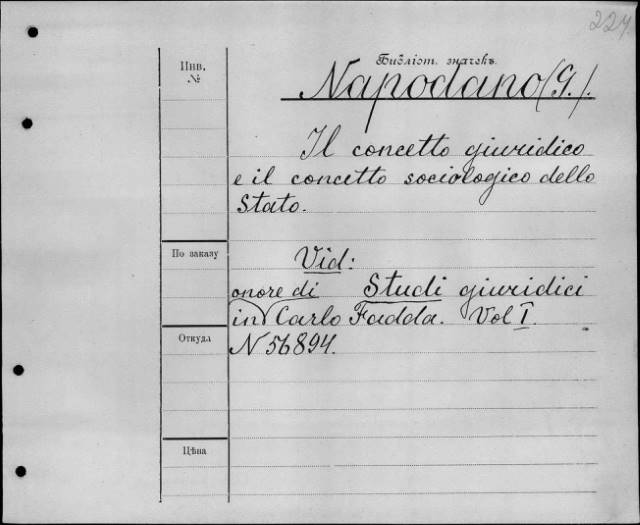 224
Библіот. значекъ.
Инв.
№
Napodano (G.).
Il concetto giuridico
e il concetto sociologico dello
Stato.
По заказу
Vid:
onore di Studi giuridici
in Carlo Fadda. Vol I.
Откуда
N 56894.
Цѣна